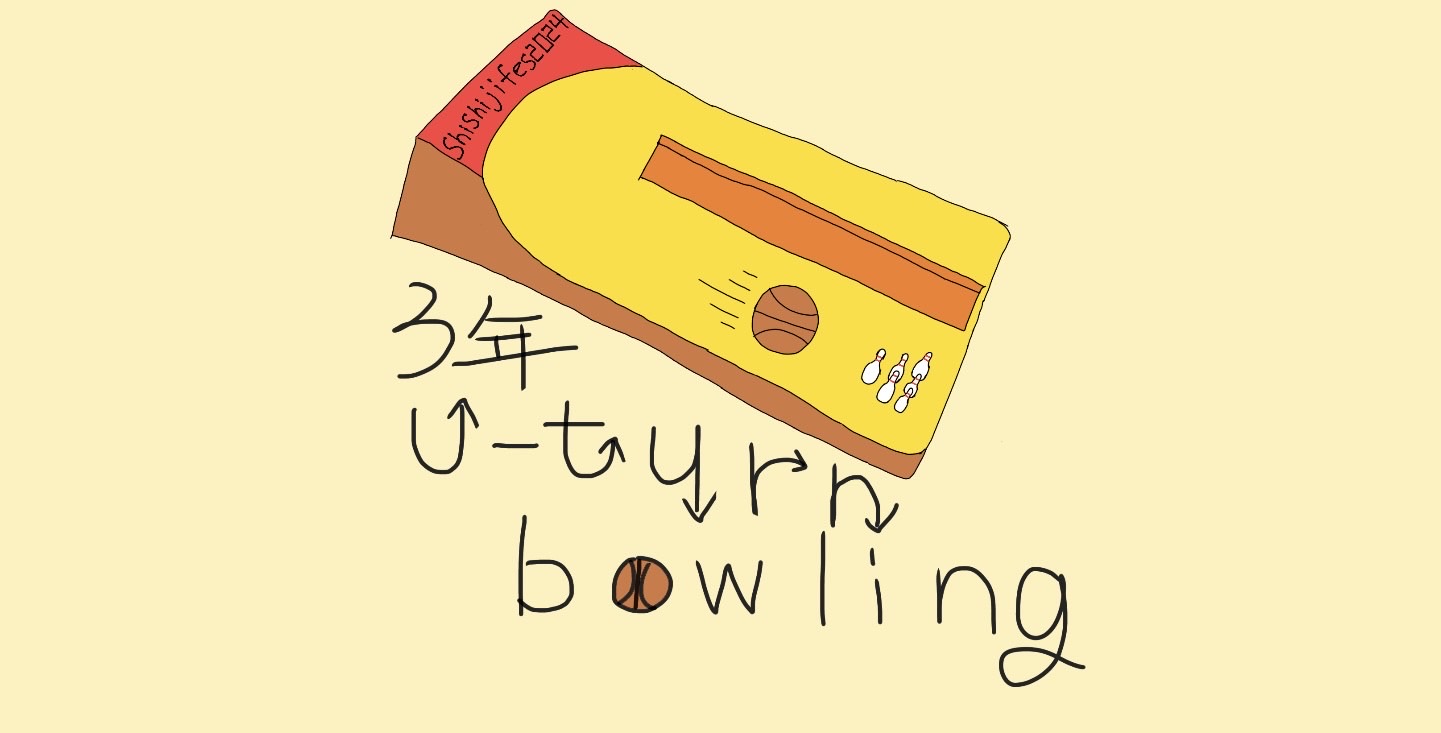 Shishijifes2024
3年
U-turn
bowling